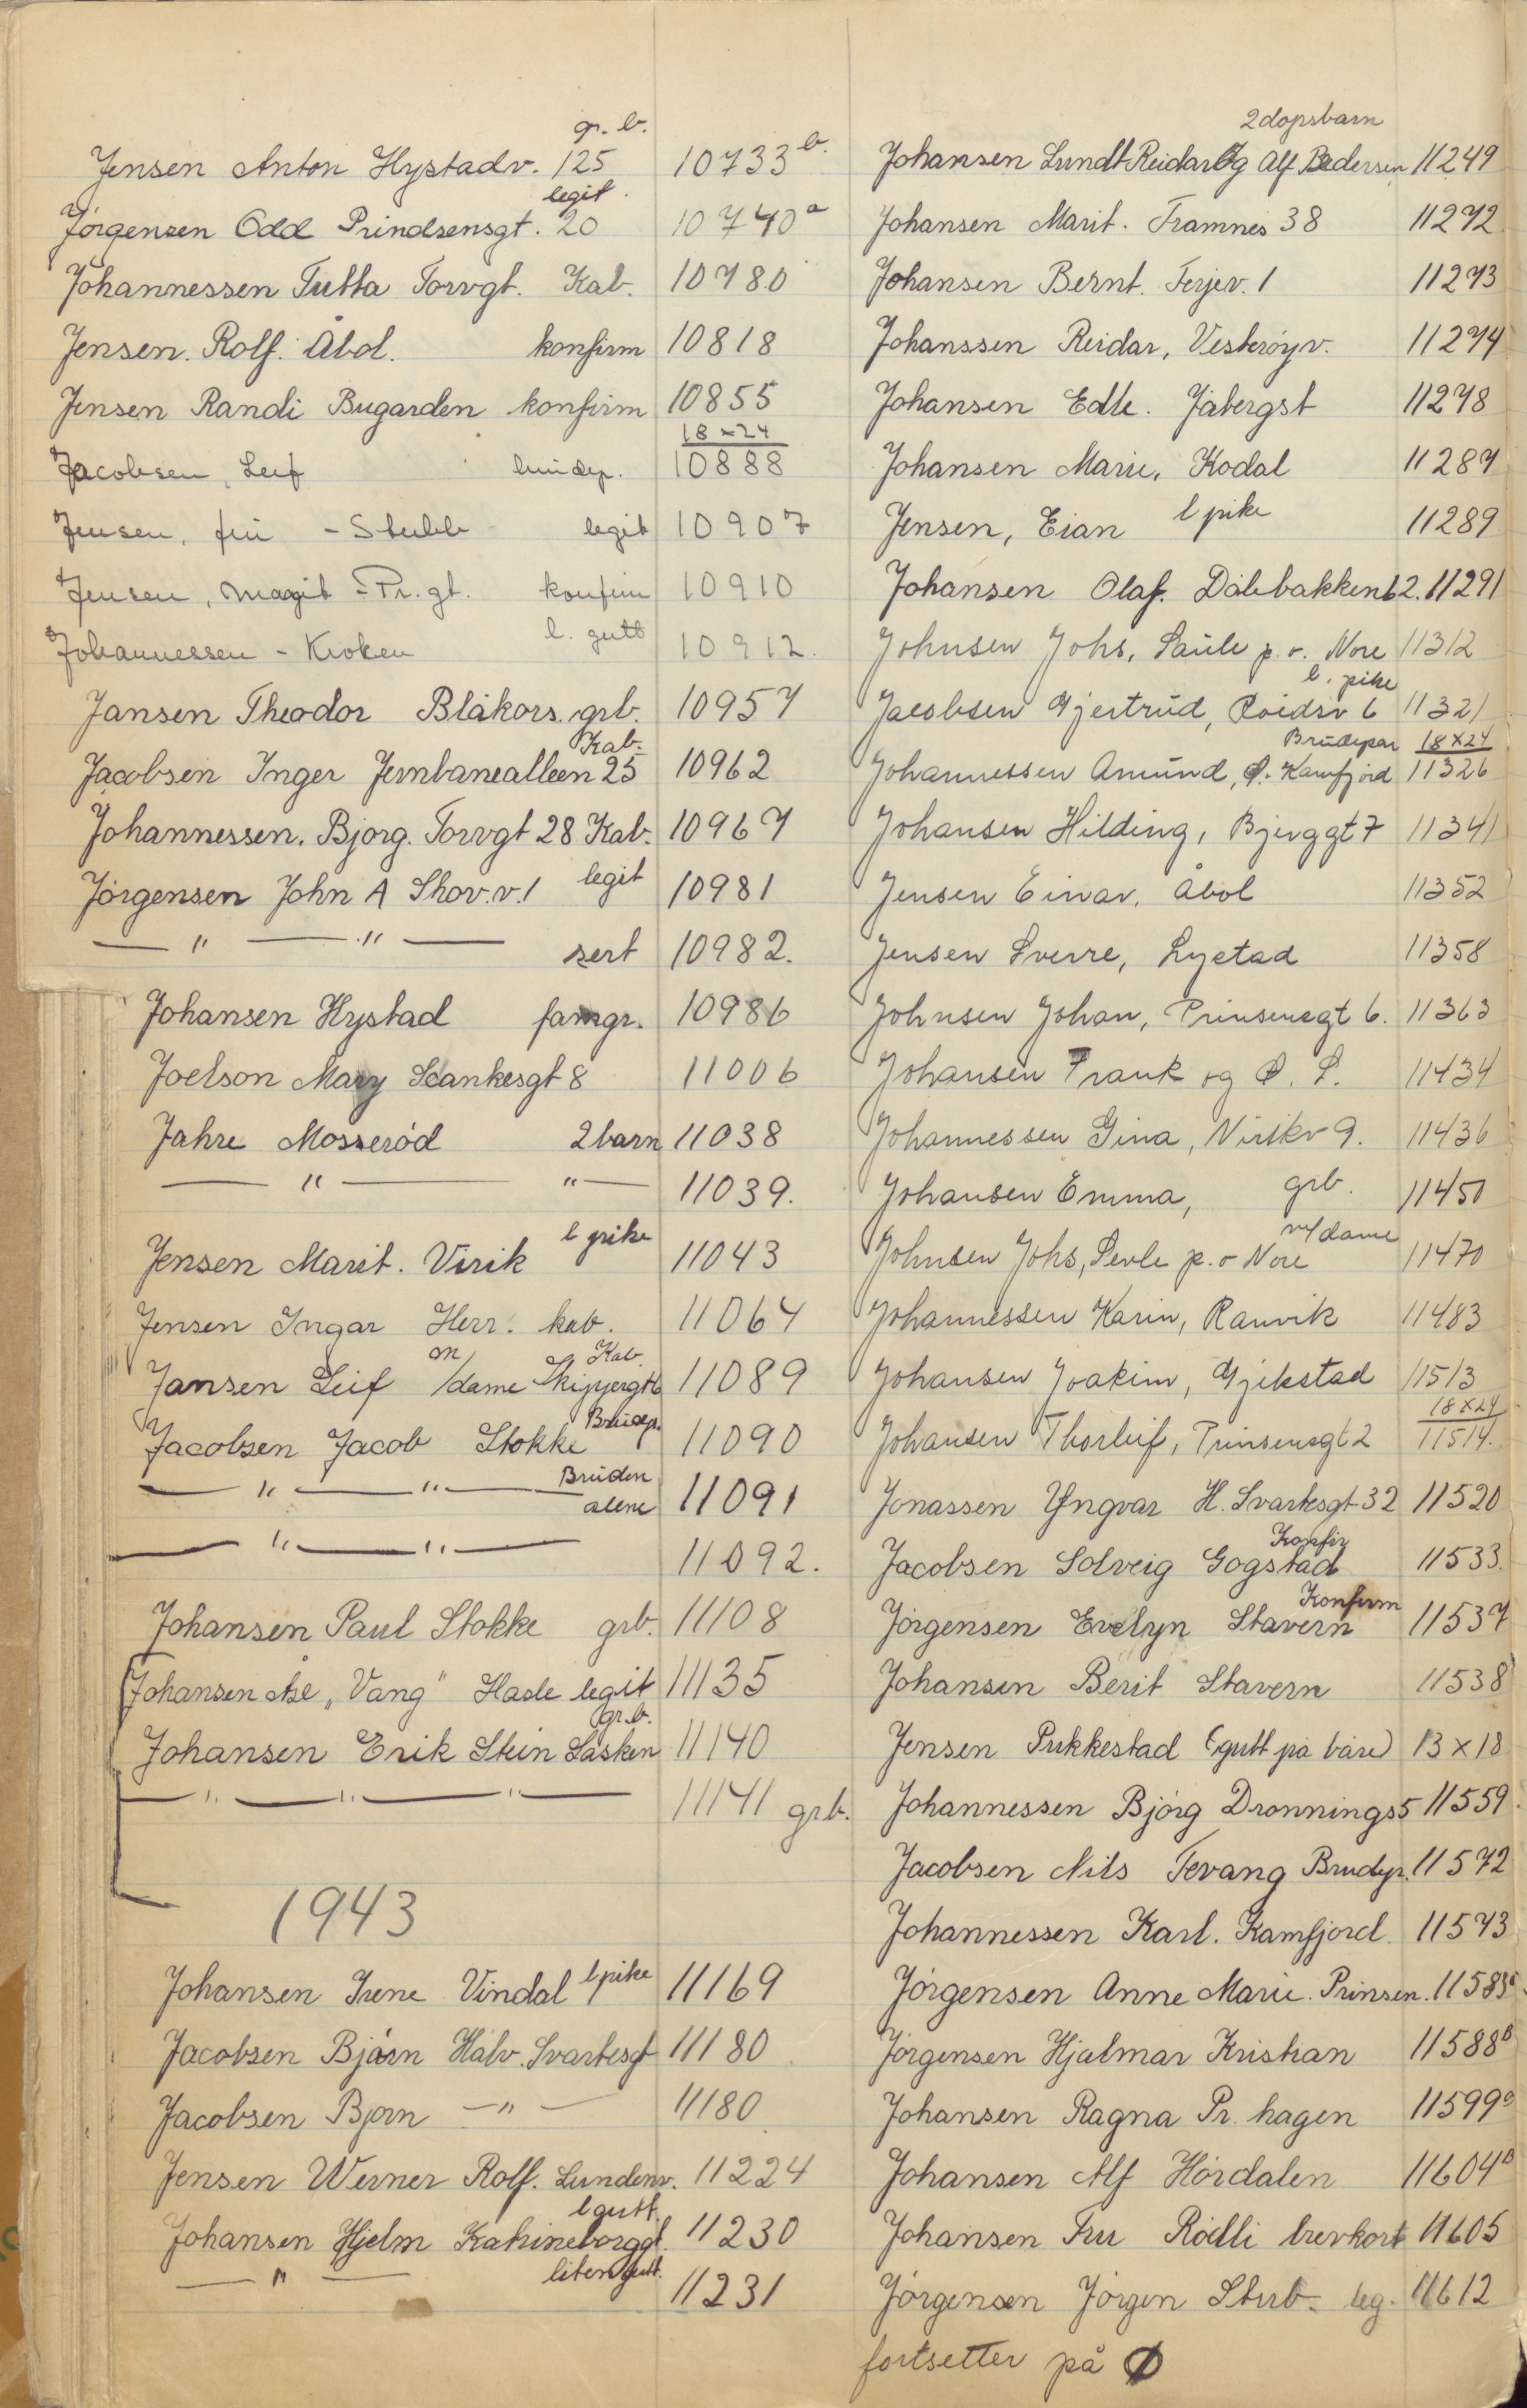 gr. b.
Jensen Anton Hystadv. 125 10733 b.
legit.
Jörgensen Odd Prindsensgt. 20 10740 a
Johannessen Tutta Torvgt. Kab. 10780
Jensen. Rolf. Åbol. konfirm 10818
Jensen Randi Bugarden konfirm 10855
18x24
Jacobsen, Leif brudep. 10888
Jensen, - Stubb legit 10907
Jensen, Magit - Pr.gt. konfirm 10910
Johannessen - Kroken l. gutt 10912.
Jansen Theodor Blåkors. grb. 10957
Kab.
Jacobsen Inger Jernbanealleen 25 10962
Johannessen. Bjorg. Torvgt 28 Kab. 10967
Jörgensen John A Skov.v.1 legit 10981
— " — " — sert 10982.
Johansen Hystad famgr. 10986
Joelson Mary Scankesgt 8 11006
Jahre Mosseród 2 barn 11038
— " — " — 11039.
Jensen Marit. Virik l pike 11043
Jensen Ingar Herr. kab. 11064
m Kab.
Jansen Leif /dame Skipjergt 6 11089
Brudep.
Jacobsen Jacob Stokke 11090
— " — " — Bruden alene 11091
— " — " — 11092.
Johansen Paul Stokke grb. 11108
Johansen Åse „Vang" Hasle legit 11135
gr.b.
Johansen Erik Stein Låsken 11140
— " — " — " — 11141 grb.
1943
Johansen Irene Vindal l pike 11169
Jacobsen Bjørn Halv. Svartesgt 11180
Jacobsen Bjorn — " — 11180
Jensen Werner Rolf. Lundenv. 11224
l gutt.
Johansen Hjelm Katrineborggt. 11230
— " — liten gutt. 11231
2 dopsbarn
Johansen Lundt Reidar Og Alf Pedersen 11249
Johansen Marit. Framnes 38 11272
Johansen Bernt. Ferjev. 1 11273
Johanssen Reidar, Vesterøyv. 11274
Johansen Edle. Jåbergst 11278
Johansen Marie, Kodal 11287
Jensen, Eian l pike 11289
Johansen Olaf. Dølebakken 62. 11291
Johnsen Johs, Saule p.o. Nore 11312
l. pike
Jacobsen Gjertrud, Roidsv 6 11321
Brudepar 18x24
Johannessen Amund, Ø. Kamfjord 11326
Johansen Hilding, Bjerggt 7 11341
Jensen Einar, Åbol 11352
Jensen Sverre, Lystad 11358
Johnsen Johan, Prinsensgt 6. 11363
Johansen Frank og Ø. S. 11434
Johannessen Gina, Virikv 9. 11436
Johansen Emma, grb. 11450
m/dame
Johnsen Johs, Sevle p.o Nore 11470
Johannessen Karin, Ranvik 11483
Johansen Joakim, Gjekstad 11513
18x24
Johansen Thorleif, Prinsensgt 2 11514.
Jonassen Yngvar H. Svartesgt 32 11520
Konfir
Jacobsen Solveig Gogstad 11533.
Konfirm
Jörgensen Evelyn Stavern 11537
Johansen Berit Stavern 11538
Jensen Pukkestad (gutt på båre) 13 x 18
Johannessen Bjórg Dronnings 5 11559.
Jacobsen Nils Tevang Brudep. 11572
Johannessen Karl. Kamfjord. 11573
Jórgensen Anne Marie. Prinsen. 11583 B
Jorgensen Hjalmar Kristian 11588 B
Johansen Ragna Pr. hagen 11599 B
Johansen Alf Hördalen 11604 B
Johansen Fru Rödli brevkort 11605
Jórgensen Jörgen Stub. leg. 11612
fortsetter på Ø